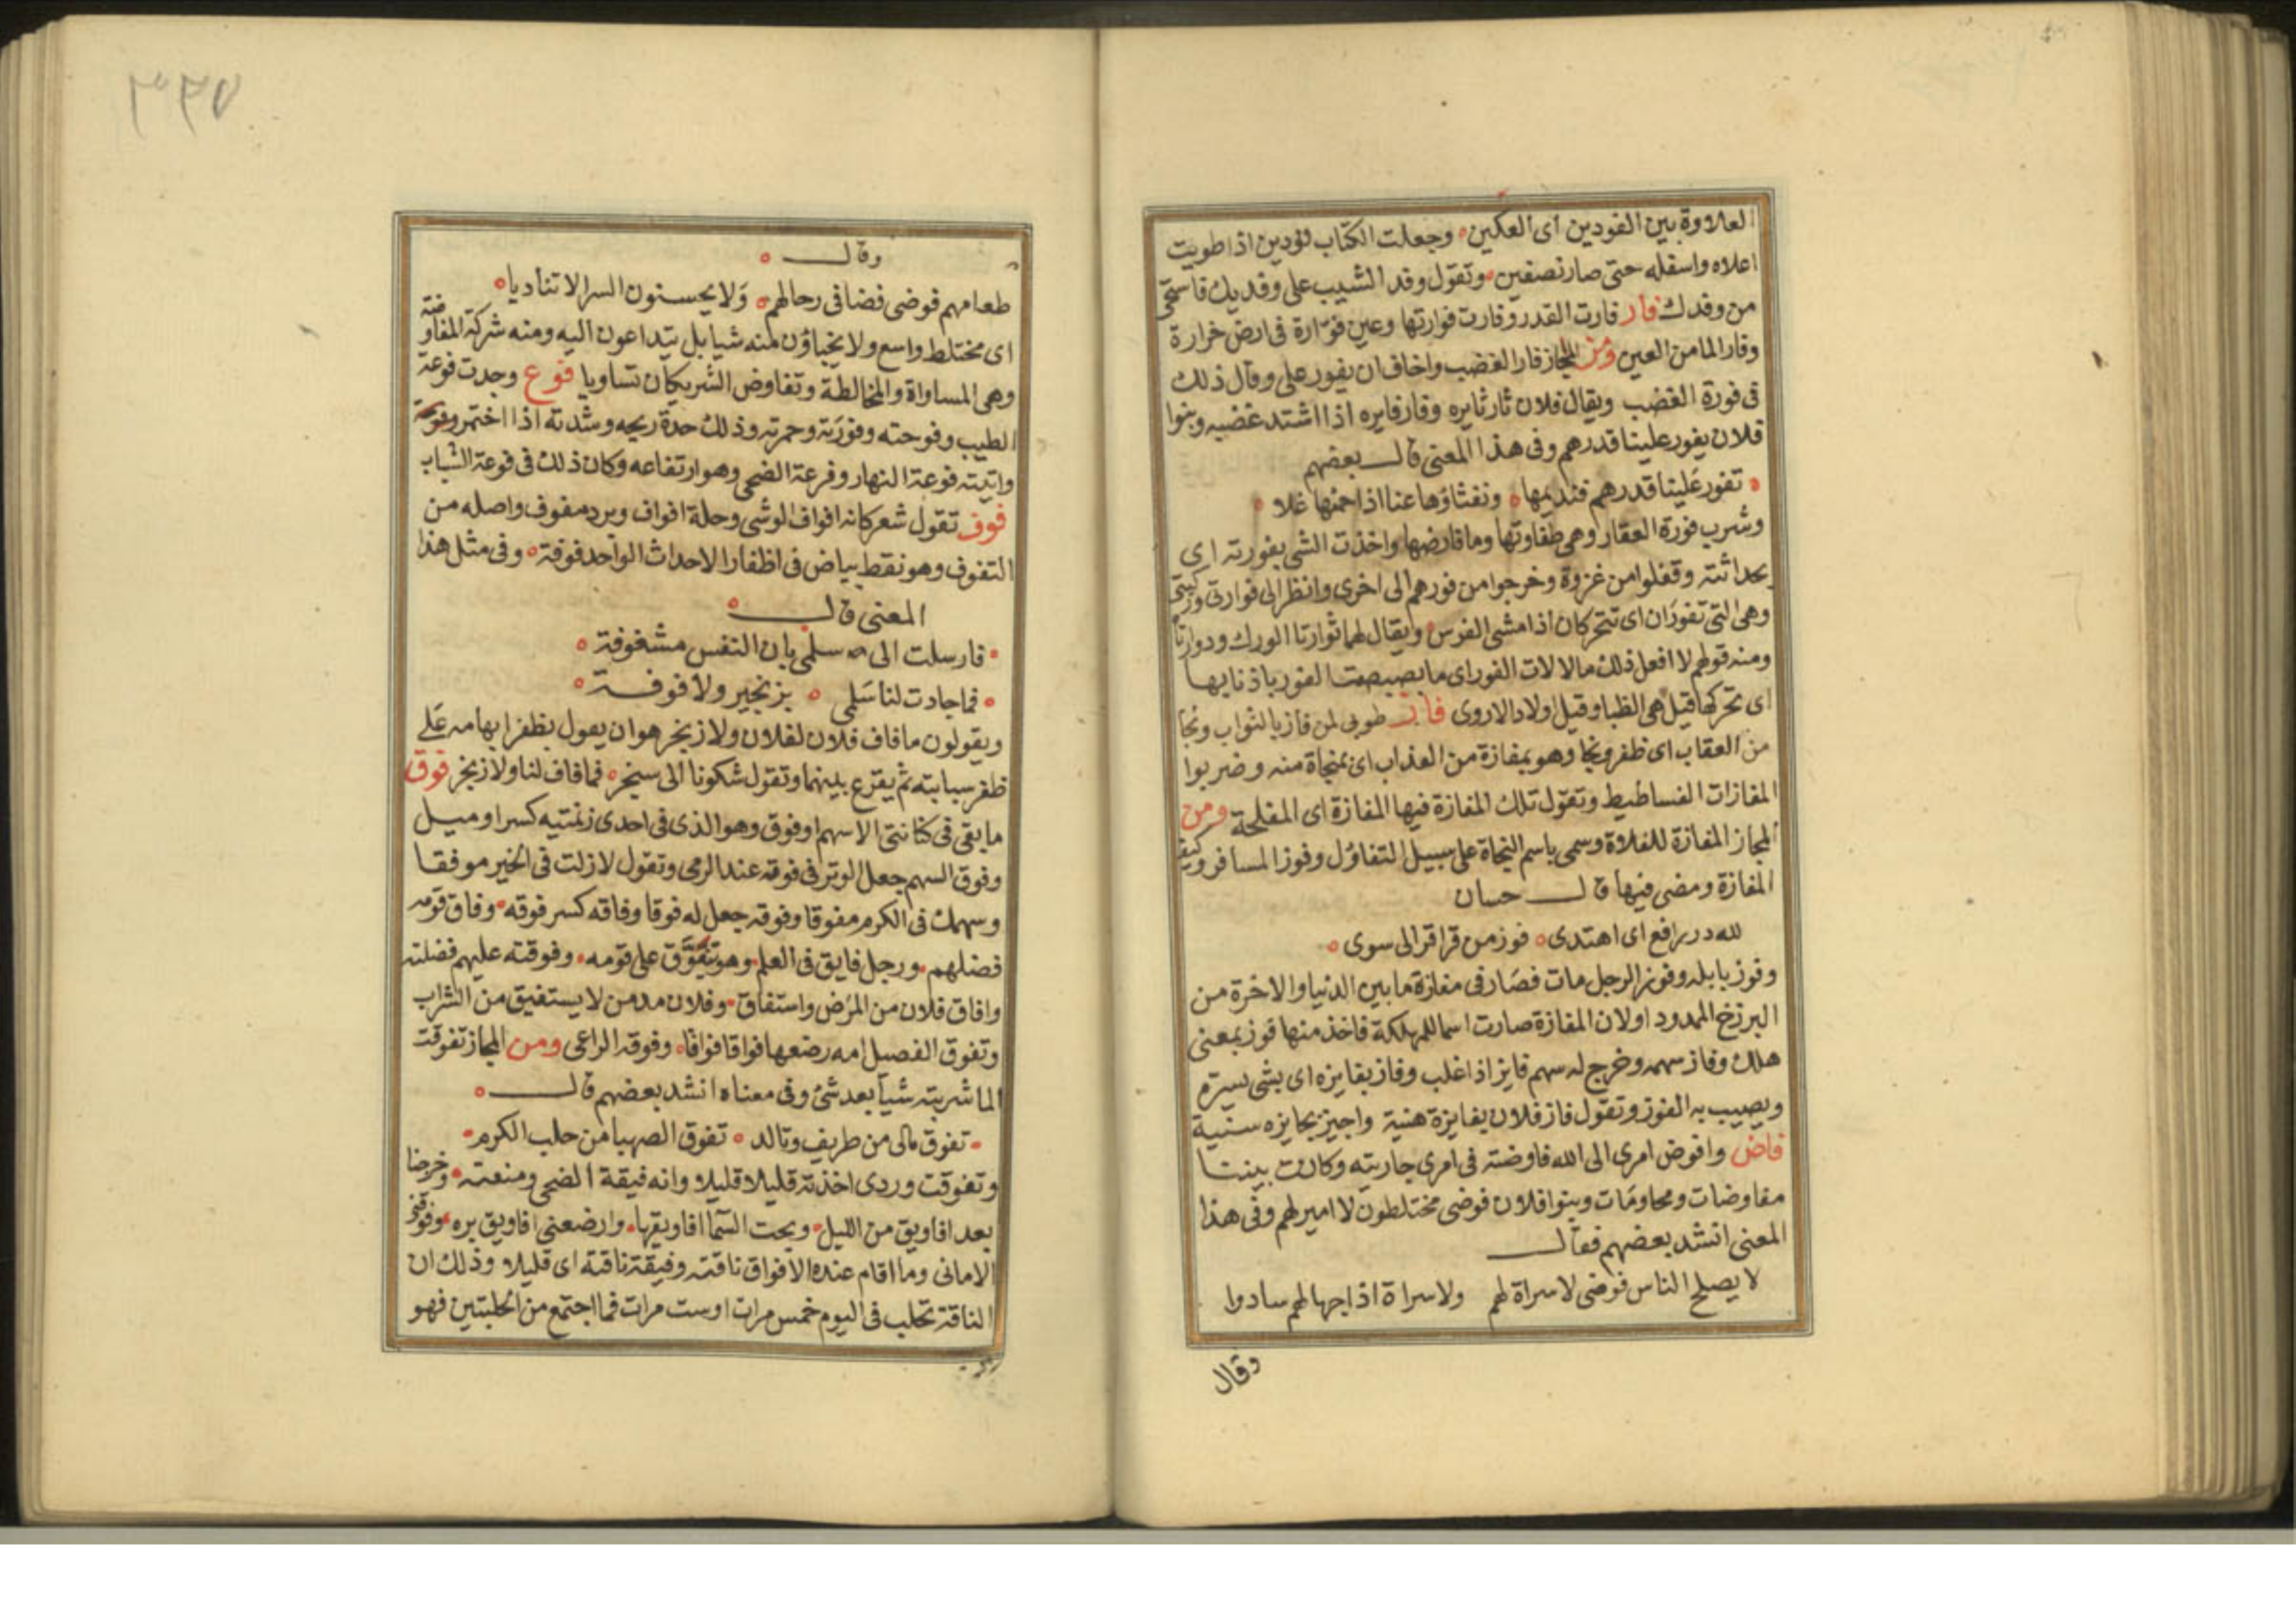 العلاوة بين الفودين اى العكين وجعلت الكتاب فودين اذا طويت
اعلاه واسفله حتى صار نصفين وتقول وفد الشيب على وفديك فاستحى
من وفدك فار فارت القدر وفارت فوارتها وعين فوّارة فى ارض خرارة
وفار الما من العين ومن المجاز فار الغضب واخاف ان يفور على وقال ذلك
فى فورة الغضب ويقال فلان ثار ثايره وفار فايره اذا اشتد غضبه وبنوا
فلان يفور علينا قدرهم وفى هذا المعنى قال بعضهم
تفور علينا قدرهم فنديمها ونفثاؤها عنا اذا حميها غلا
وشرب فورة العقار وهى طفاوتها وما فار منها واخذت الشى بفورته اى
بحداثته وقفلوا من غزوة وخرجوا من فورهم الى اخرى وانظر الى فوارتى وركيتى
وهى التى تفوران اى تتحركان اذا مشى الفرس ويقال لهما ثوارتا الورك ودوارتا
ومنه قولهم لا افعل ذلك ما لالات الفور اى ما بصبصت الفور باذنابها
اى تحركها قيل هى الظبا وقيل اولاد الاروى فاز طوبى لمن فاز بالثواب ونجا
من العقاب اى ظفر ونجا وهو بمفازة من العذاب اى بمنجاة منه وضربوا
المفازات الفساطيط وتقول تلك المفازة فيها المفازة اى المفلحة ومن
المجاز المفازة للفلاوة وسمى باسم النجاة على سبيل التفاؤل وفوز المسافر
المفازة ومضى فيها قال حسان
لله در رافع اى اهتدى فوز من قراقر الى سوى
وفوز بابله وفوز الرجل مات فصار فى مفازة ما بين الدنيا والاخرة من
البرزخ الممدود اولان المفازة صارت اسما للمهلكة فاخذ منها فوز بمعنى
هلك وفاز سهمه وخرج له سهم فايز اذا غلب وفاز بفايزه اى بشى يسره
ويصيب به الفوز وتقول فاز فلان بفايزة هنية واجيز بجايزه سنية
فاض وافوض امرى الى الله فاوضته فى امرى جاريته وكانت بيننا
مفاوضات ومحاومات وبنوا فلان فوضى مختلطون لا امير لهم وفى هذا
المعنى انشد بعضهم فقال
لا يصلح الناس فوضى لا سراة لهم ولا سراة اذا جهالهم سادوا
وقال
وقال
طعامهم فوضى فضا فى رحالهم ولا يحسنون السر الا تناديا
اى مختلط واسع ولا يخباؤن منه شيا بل يتداعون اليه ومنه شركة المفاوضة
وهى المساواة والمخالطة وتفاوض الشريكان تساويا فوع وجدت فوعة
الطيب وفوحته وفورته وحمرته وذلك حدة ريحه وشدته اذا اختمر
واتيته فوعة النهار وفرعة الضحى وهو ارتفاعه وكان ذلك فى فوعة الشباب
فوف تقول شعر كانه افواف الوشى وحلة افواف وبرد مفوف واصله من
التفوف وهو نقط بياض فى اظفار الاحداث الواحد فوفة وفى مثل هذا
المعنى قال
فارسلت الى سلمى بان النفس مشغوفة
فما جادت لنا سلمى بزنجير ولا فوفة
ويقولون ما فاف فلان لفلان ولا زنجر هو ان يقول بظفر ابهامه على
ظفر سبابته ثم يقرع بينهما وتقول شكونا الى سنجر فما فاف لنا ولا زنجر فوق
ما بقى فى كنانتى الا سهم افوق وهو الذى فى احدى زنمتيه كسر او ميل
وفوق السهم جعل الوتر فى فوقه عند الرمى وتقول لا زلت فى الخير موفقا
وسهمك فى الكرم مفوقا وفوقه جعل له فوقا وفاقه كسر فوقه وفاق قومه
فضلهم ورجل فايق فى العلم وهو يتفوّق على قومه وفوقته عليهم فضلته
وافاق فلان من المرض واستفاق وفلان مدمن لا يستفيق من الشراب
وتفوق الفصيل امه رضعها فواقا فواقا وفوقه الراعى ومن المجاز تفوقت
الما شربته شيا بعد شئ وفى معناه انشد بعضهم قال
تفوق مالى من طريف وتالد تفوق الصهبا من حلب الكرم
وتفوقت وردى اخذته قليلا قليلا وانه فيقة الضحى ومنعته وخرجنا
بعد افاويق من الليل ومجت السما افاويقها وارضعنى افاويق بره وفوقنى
الامانى وما اقام عنده الا فواق ناقته وفيقة ناقته اى قليلا وذلك ان
الناقة تحلب فى اليوم خمس مرات او ست مرات فما اجتمع من الحلبتين فهو